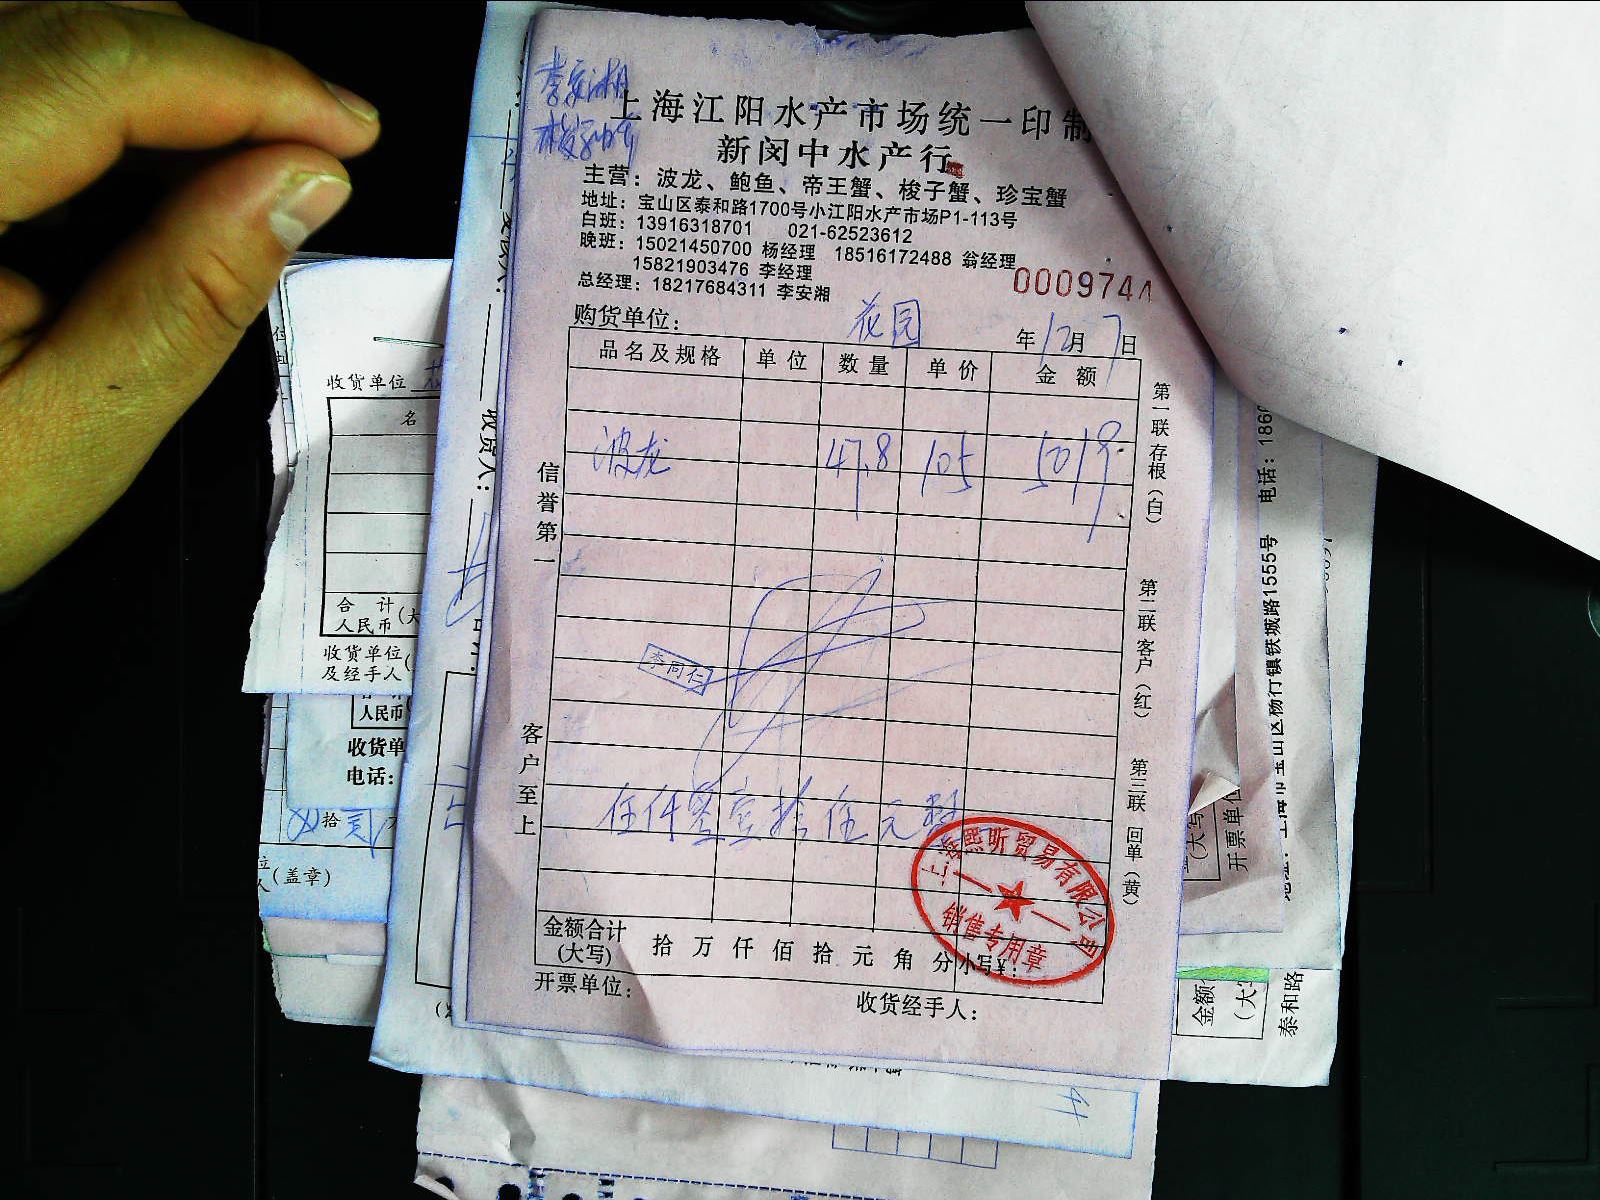 上海江阳水产市场统一印制
新闵中水产行
主营：波龙、鲍鱼、帝王蟹、梭子蟹、珍宝蟹
地址：宝山区泰和路1700号小江阳水产市场P1-113号
白班：13916318701 021-62523612
晚班：15021450700 杨经理 18516172488 翁经理
15821903476 李经理
总经理：18217684311 李安湘
000974
购货单位： 花园 年12月7日
品名及规格 单位 数量 单价 金额
波龙 47.8 105 5019
信誉第一
客户至上
李同仁
伍仟零壹拾 元整
上海熙昕贸易有限公司
销售专用章
金额合计(大写) 拾 万 仟 佰 拾 元 角 分 小写¥：
开票单位： 收货经手人：
第一联 存根（白）
第二联 客户（红）
第三联 回单（黄）
收货单位
名
合 计
人民币（大
收货单位
及经手人（
人民币
收货单
电话：
拾
（盖章）
收货人：
电话：186
杨行镇铁城路1555号
（大写
开票单位
金额
（大
泰和路